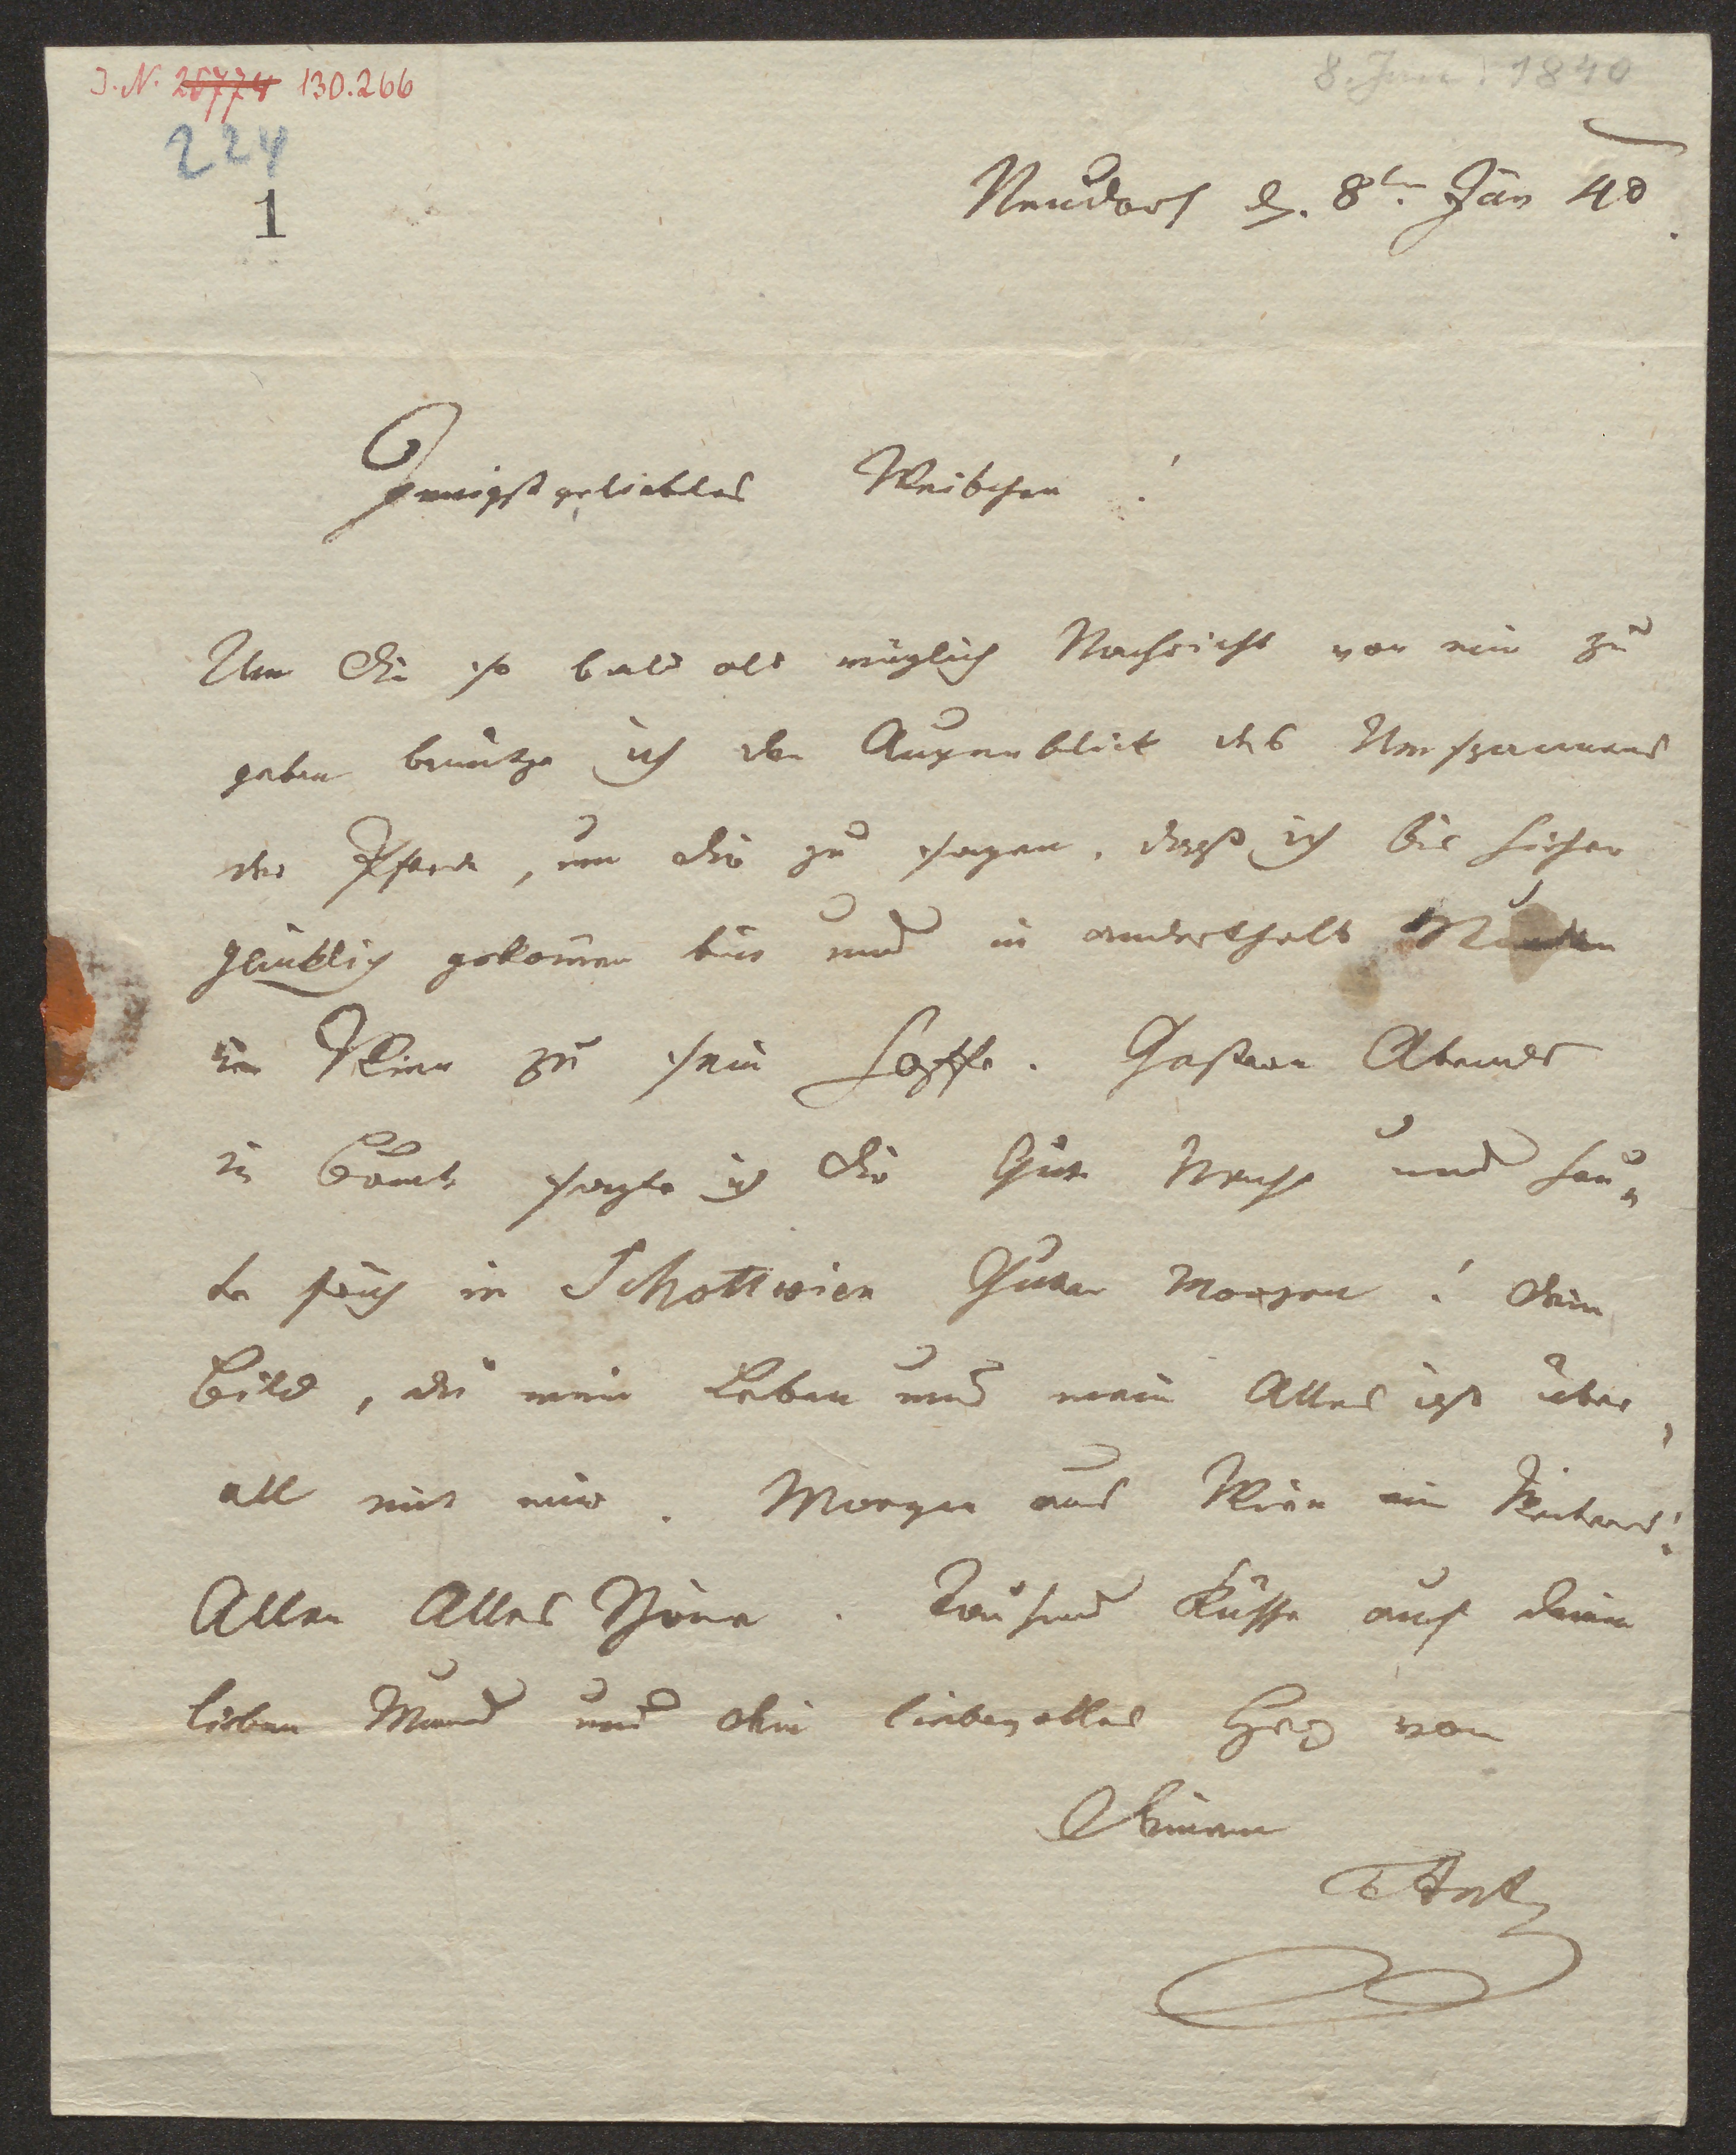 J. N. 25774 130.266
8. Jän. 1840
224
1
Neudorf d. 8ten Jän 40.
Innigst geliebtes Weibchen!
Um Dir so bald als möglich Nachricht von mir zu
geben benütze ich den Augenblick des Umspannens
der Pferde, um Dir zu sagen, daß ich bis hieher
glücklich gekom̅en bin und in anderthalb
in Wien zu sein hoffe. Gestern Abends
in sagte ich Dir Gute Nacht und heu„
te früh in Schottwien Guten Morgen! Dein
Bild, du mein Leben und mein Alles ist über„
all mit mir. Morgen aus Wien ein Weiteres!
Allen Alles Schöne. Tausend Küsse auf deinen
lieben Mund und dein liebevolles Herz von
Deinem